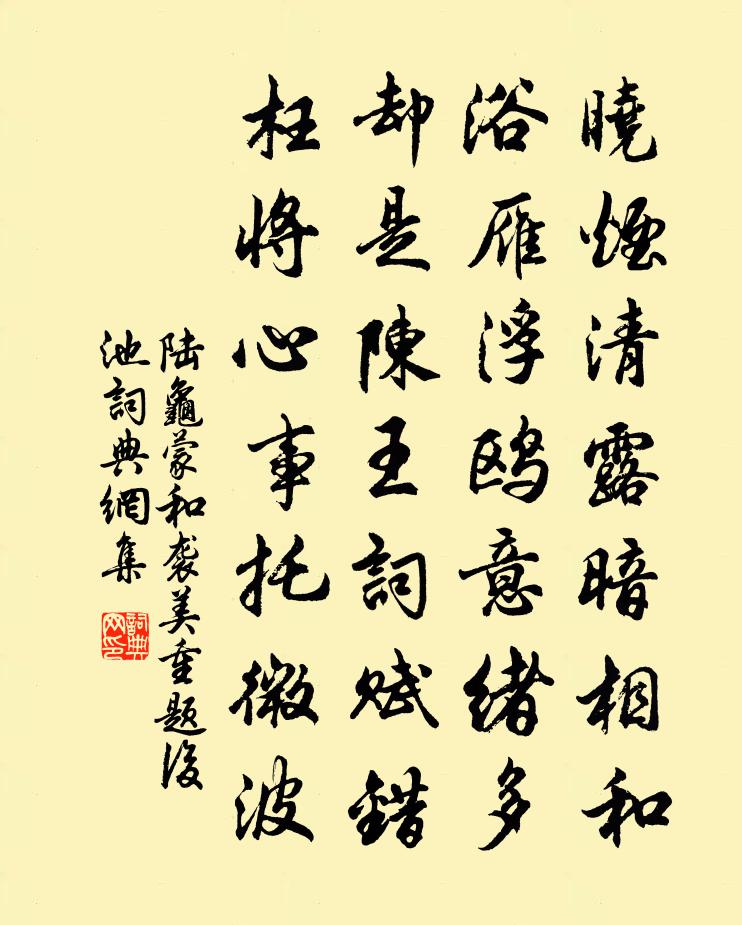 曉煙清露暗相和
浴雁浮鸥意緒多
却是陳王詞賦錯
枉將心事托微波
陆龜蒙和袭美重题後
池詞典網集
詞典网印